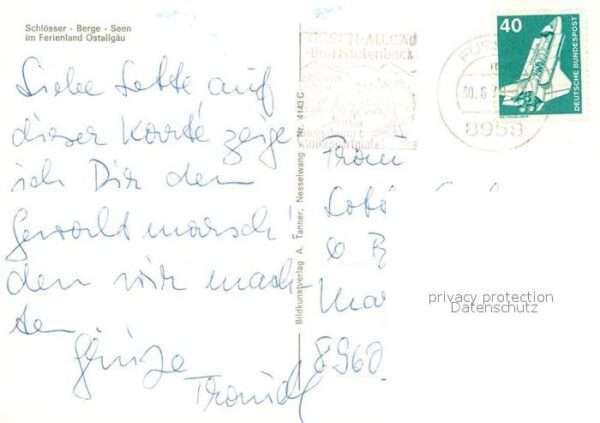 Schlösser - Berge - Seen
im Ferienland Ostallgäu
Liebe Lotte, auf
dieser Karte zeige
ich Dir den
Gewaltmarsch!
den wir mach-
ten
Grüsse
Traudl
Bildkunstverlag A. Tanner, Nesselwang • Nr. 4143 C
40
DEUTSCHE BUNDESPOST
8958
Frau
6 B
8960
privacy protection
Datenschutz